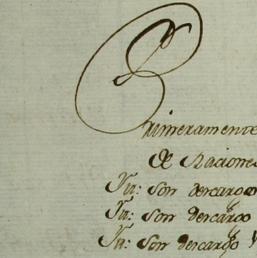 Primeramente
de Raciones
Yn: son descargo
Yn: son descargo
Yn: son descargo